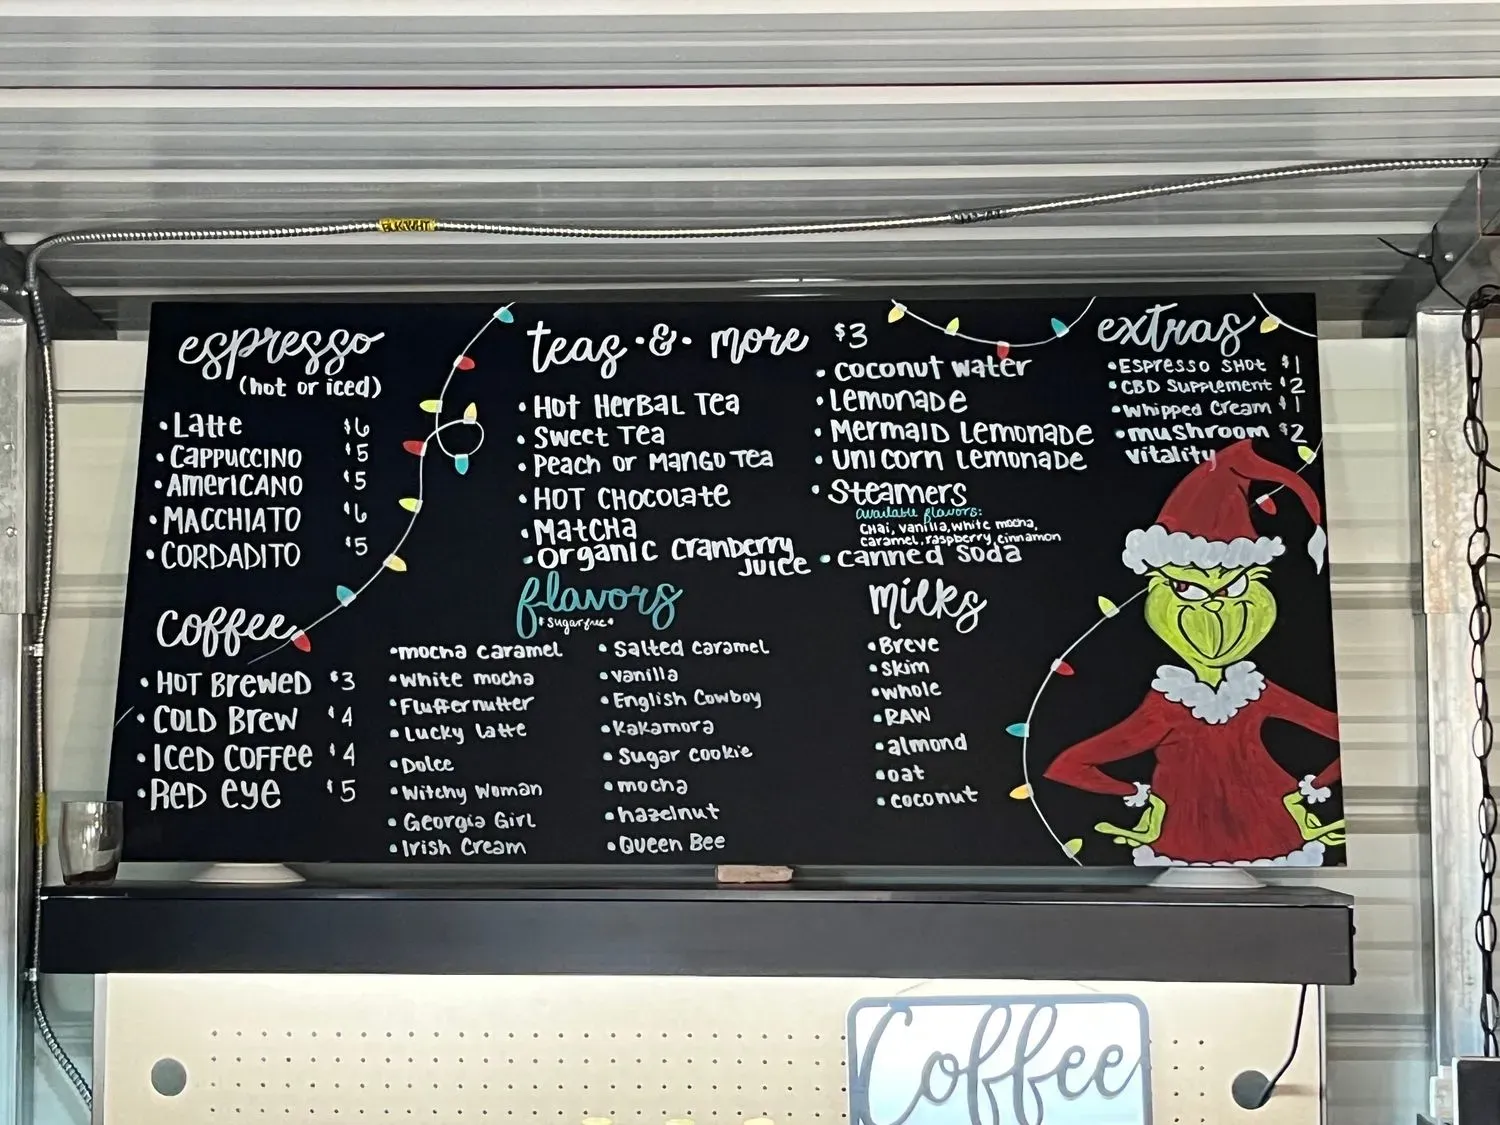 BLK/WHT
espresso
(hot or iced)
• Latte $6
• CAPPUCCINO $5
• AMERICANO $5
• MACCHIATO $6
• CORDADITO $5
coffee
• HOT BREWED $3
• COLD BREW $4
• ICED COFFEE $4
• RED EYE $5
teas & more $3
• HOT HERBAL TEA
• SWEET TEA
• PEACH OR MANGO TEA
• HOT CHOCOLATE
• MATCHA
• ORGANIC CRANBERRY
JUICE
• COCONUT WATER
• LEMONADE
• MERMAID LEMONADE
• UNICORN LEMONADE
• STEAMERS
available flavors:
CHAI, vanilla, white mocha,
caramel, raspberry, cinnamon
• canned soda
flavors
• sugar free •
• mocha caramel
• white mocha
• Fluffernutter
• Lucky Latte
• Dolce
• Witchy Woman
• Georgia Girl
• Irish Cream
• Salted caramel
• vanilla
• English Cowboy
• Kakamora
• Sugar cookie
• mocha
• hazelnut
• Queen Bee
milks
• Breve
• skim
• whole
• RAW
• almond
• oat
• coconut
extras
• ESPRESSO SHOT $1
• CBD Supplement $2
• Whipped Cream $1
• mushroom $2
vitality
Coffee